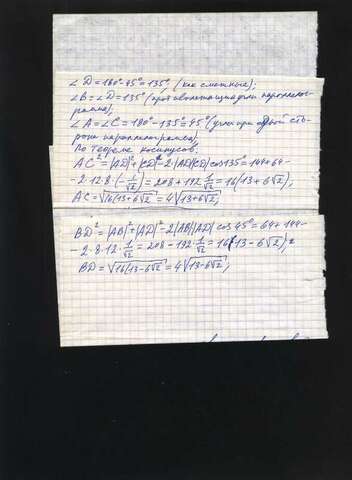 ∠D=180°-45°=135°, (как смежные);
∠B=∠D=135° (противолежащие углы параллело-
грамма);
∠A=∠C=180°-135°=45° (углы при одной сто-
роне параллелограмма).
По теореме косинусов:
AC²=|AD|²+|CD|²-2|AD||CD|cos135°=144+64-
-2·12·8·(-1/√2)=208+192·1/√2=16(13+6√2);
AC=√16(13+6√2)=4√13+6√2;
BD²=|AB|²+|AD|²-2|AB||AD|cos45°=64+144-
-2·8·12·1/√2=208-192·1/√2=16(13-6√2);
BD=√16(13-6√2)=4√13-6√2;